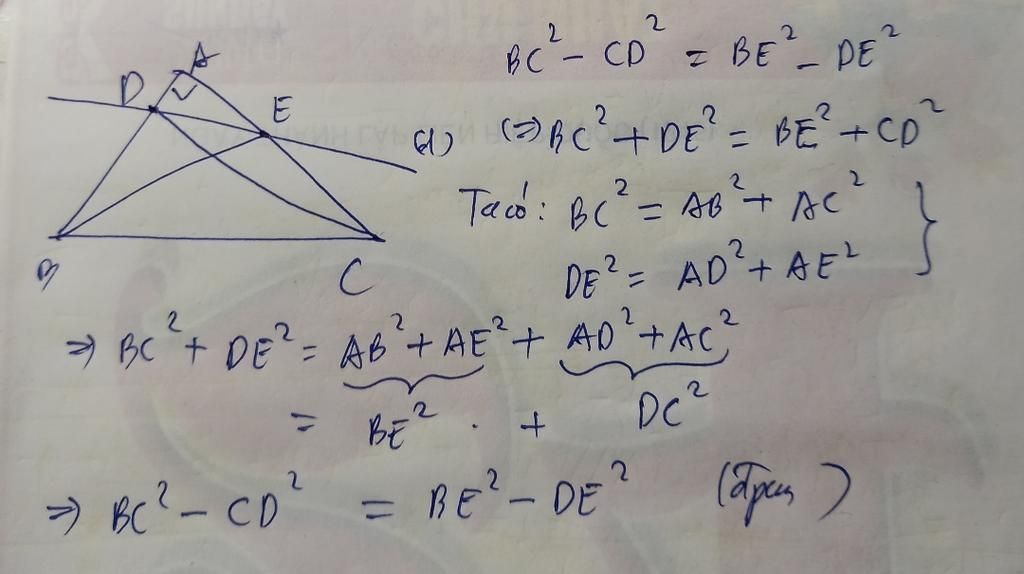 BC² - CD² = BE² - DE²
A
D
E
(d)
(=) BC² + DE² = BE² + CD²
Ta có: BC² = AB² + AC²
DE² = AD² + AE²
B
C
=> BC² + DE² = AB² + AE² + AD² + AC²
= BE² + DC²
=> BC² - CD² = BE² - DE² (đpcm)